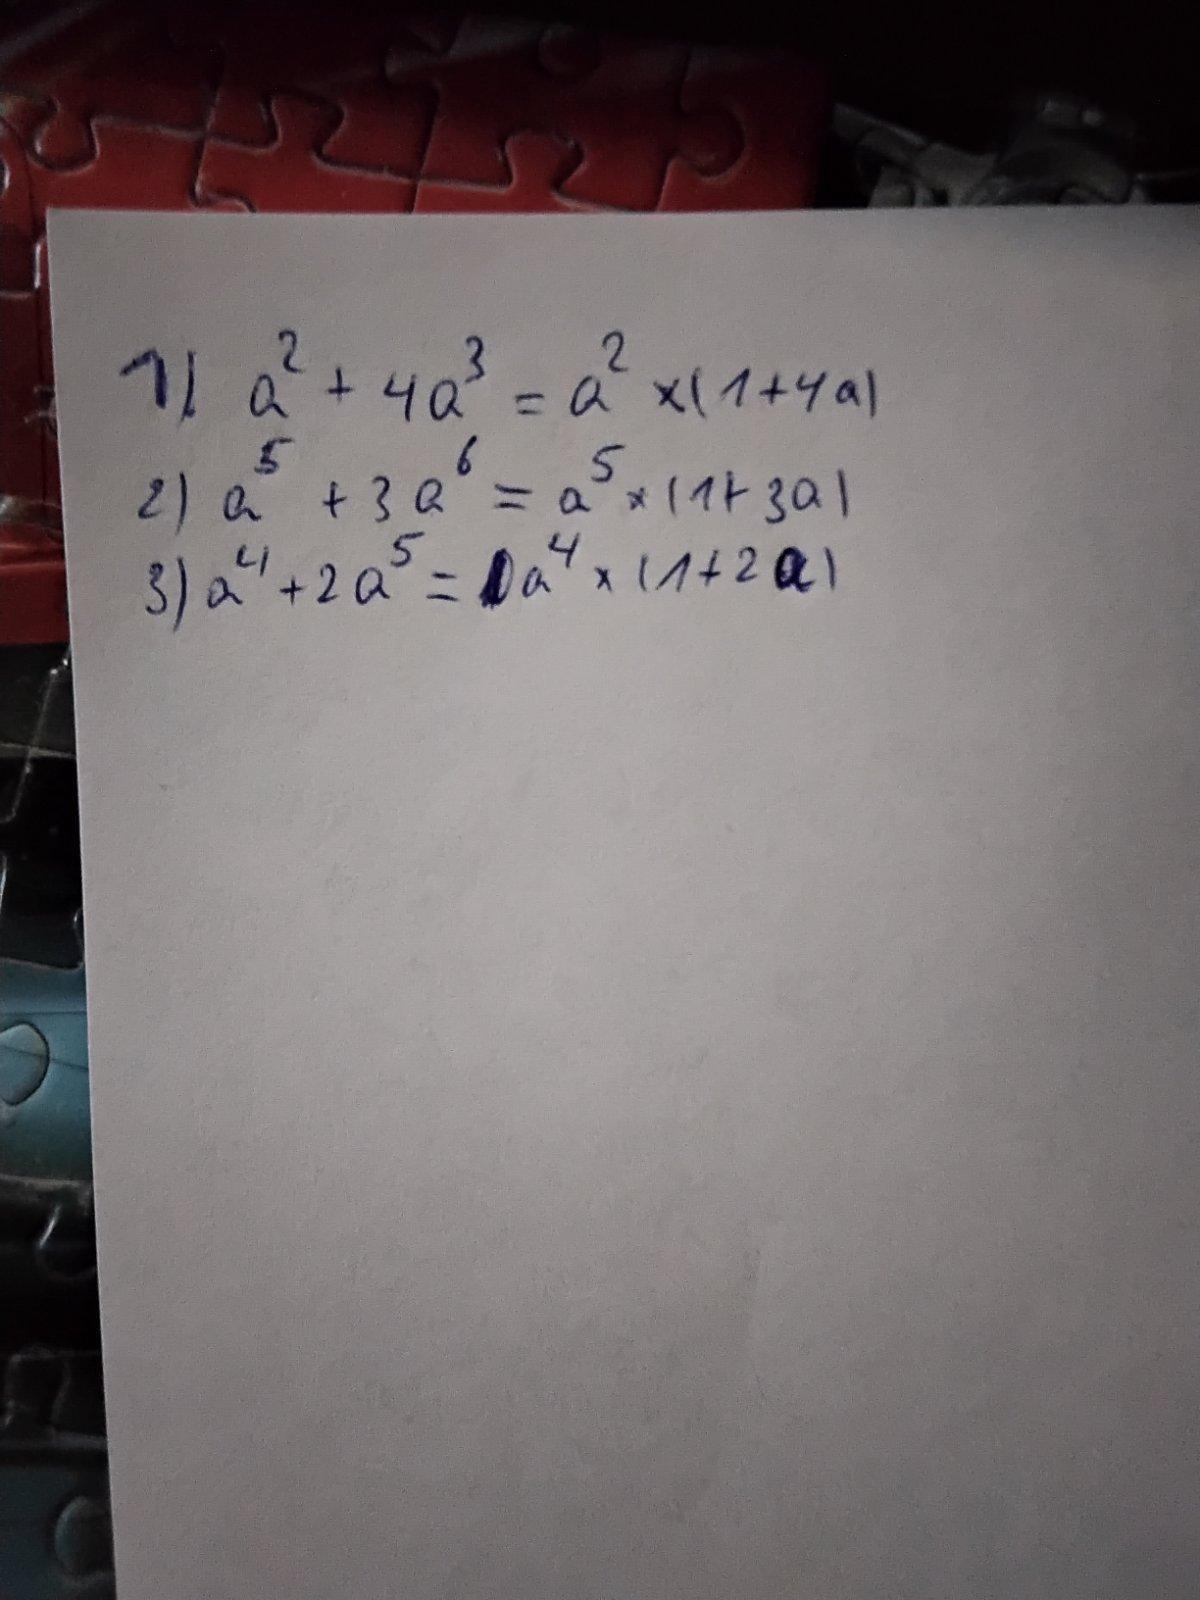 1) a² + 4a³ = a² ×(1+4a)
2) a⁵ + 3a⁶ = a⁵ × (1+3a)
3) a⁴ + 2a⁵ = a⁴ × (1+2a)